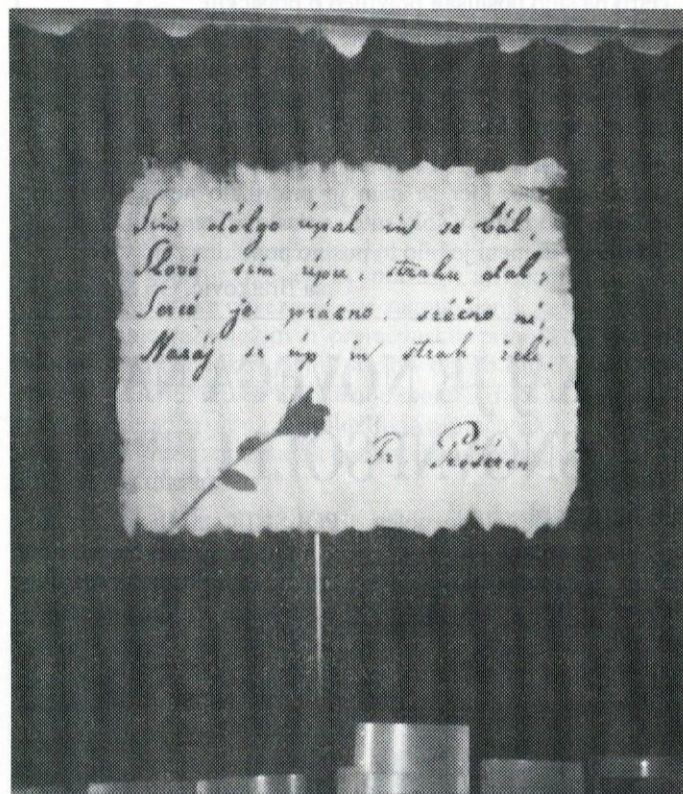 Sim dólgo úpal in se bál,
Slovó sim úpu, strahu dal;
Sercé je prázno, sréčno ní,
Nazáj si úp in strah želí.
Fr. Prešéren